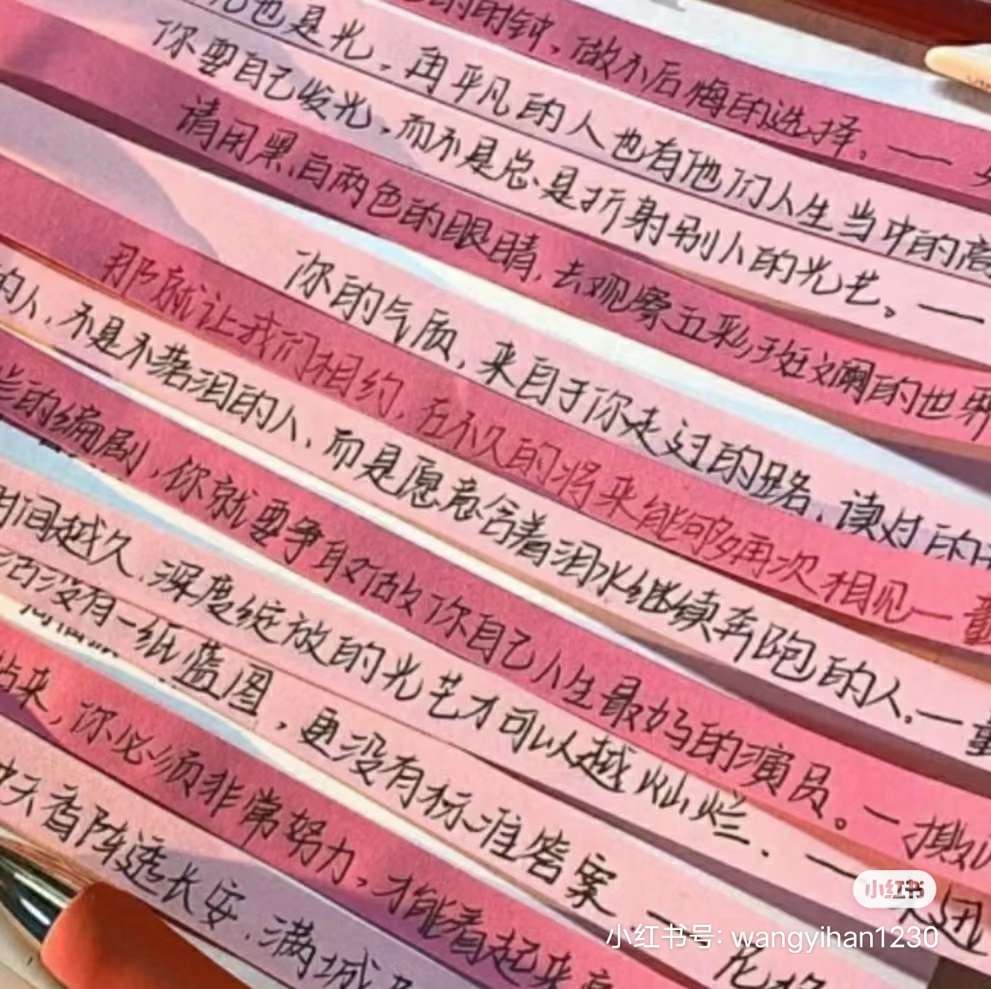 的时钟，做不后悔的选择。——
光也是光，再平凡的人也有他们人生当中的高
你要自己发光，而不是总是折射别人的光芒。——
请用黑白两色的眼睛，去观察五彩斑斓的世界
你的气质，来自于你走过的路，读过的
那就让我们相约，在不久的将来能够再次相见—
的人，不是不落泪的人，而是愿意含着泪水继续奔跑的人。—
的编剧，你就要争取做你自己人生最好的演员。—撒
时间越久，深度绽放的光芒才可以越灿烂。——
活没有一纸蓝图，更没有标准答案—
来，你必须非常努力，才能看起来
冲天香阵透长安，满城
小红书
小红书号: wangyihan1230